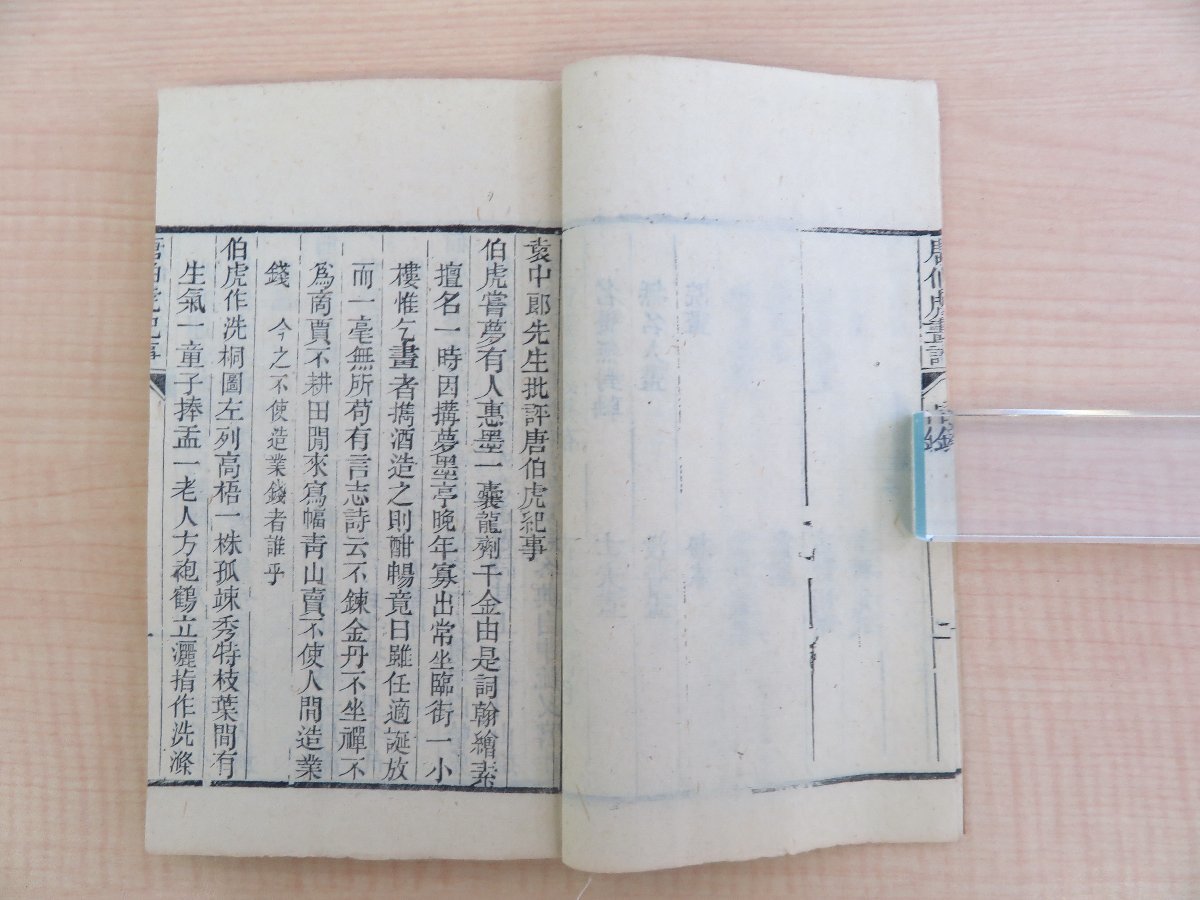 唐伯虎畫譜
目錄
二
袁中郎先生批評唐伯虎紀事
伯虎嘗夢有人惠墨一囊龍劑千金由是詞翰繪素
擅名一時因搆夢墨亭晚年寡出常坐臨街一小
樓惟乞畫者攜酒造之則酣暢竟日雖任適誕放
而一毫無所苟有言志詩云不鍊金丹不坐禪不
爲商賈不耕田閒來寫幅青山賣不使人間造業
錢 今之不使造業錢者誰乎
伯虎作洗桐圖左列高梧一株孤竦秀特枝葉間有
生氣一童子捧盂一老人方袍鶴立灑指作洗滌
唐伯虎紀事
一